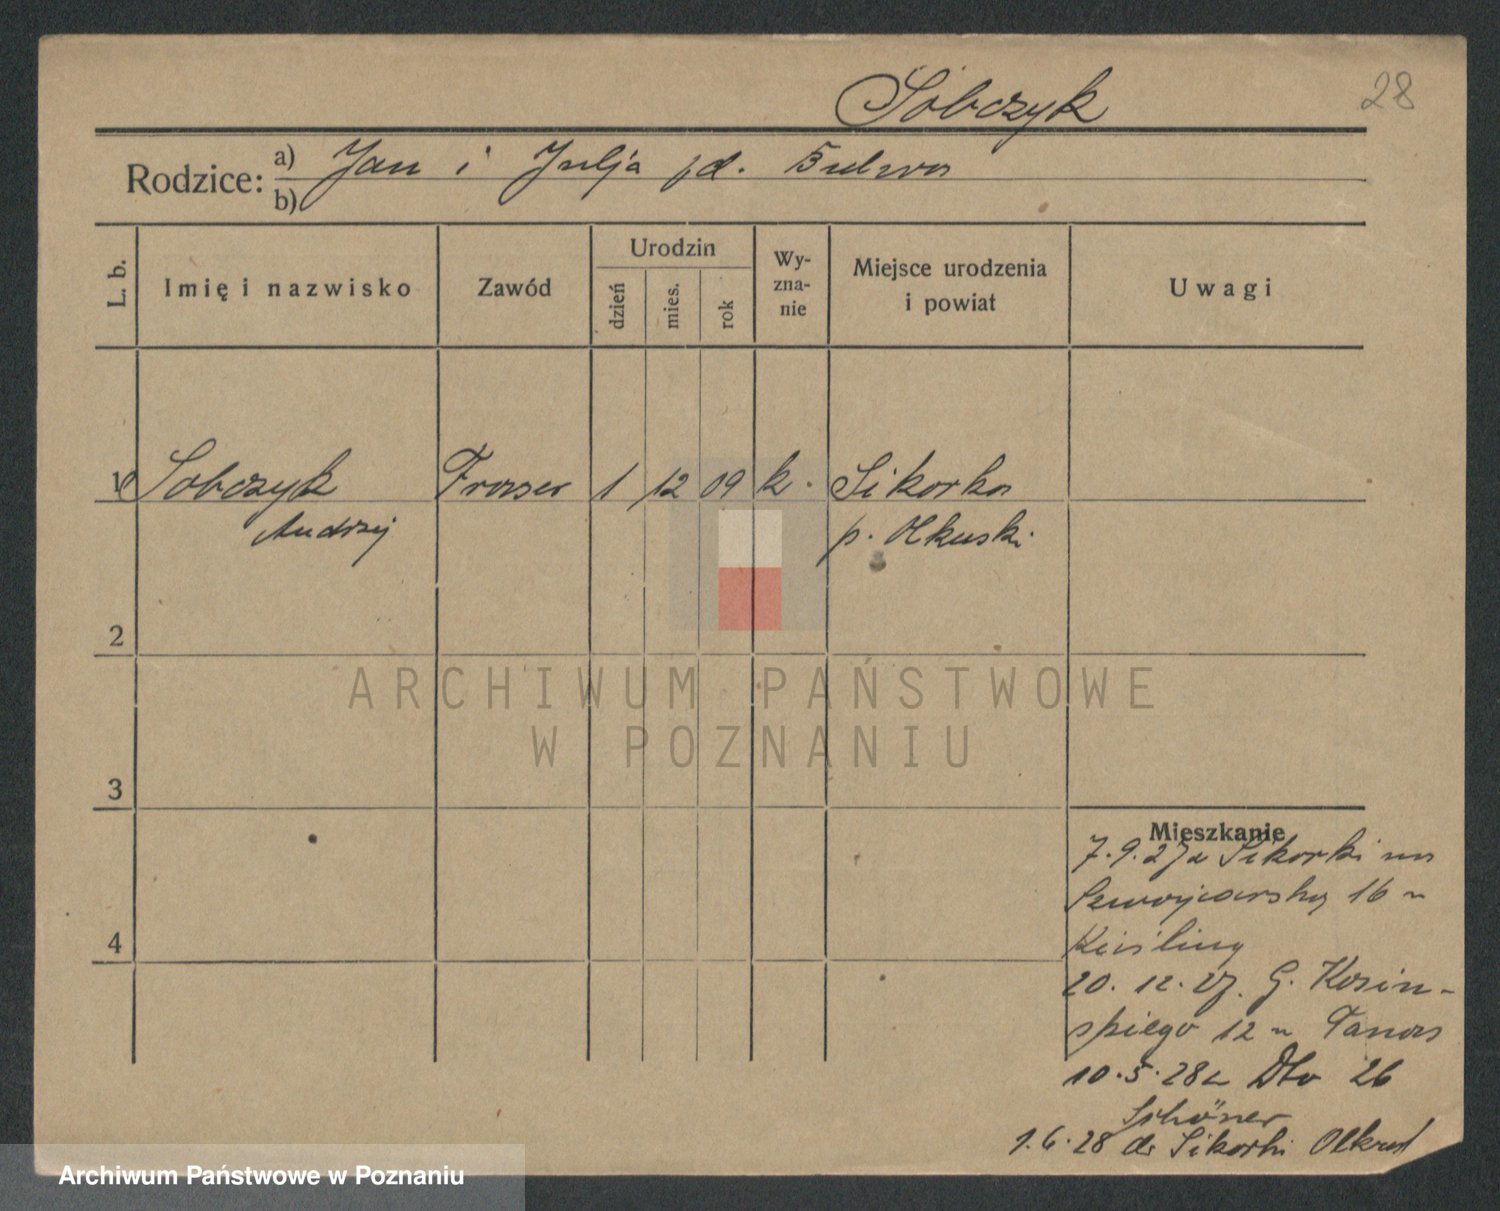 Sobczyk 28
Rodzice: a) Jan i Julja
b)
L. b. Imię i nazwisko Zawód Urodzin dzień mies. rok Wyznanie Miejsce urodzenia i powiat Uwagi
1 Sobczyk 1 12 09 k. Sikorka
Andrzej p. Olkuski
2
ARCHIWUM PAŃSTWOWE
W POZNANIU
3
Mieszkanie
7.9.27 z Sikorki na
16
4
20.12.27. G. Kosin-
skiego 12
10.5.28 Dto 26
Schöner
1.6.28 do Sikorki
Archiwum Państwowe w Poznaniu